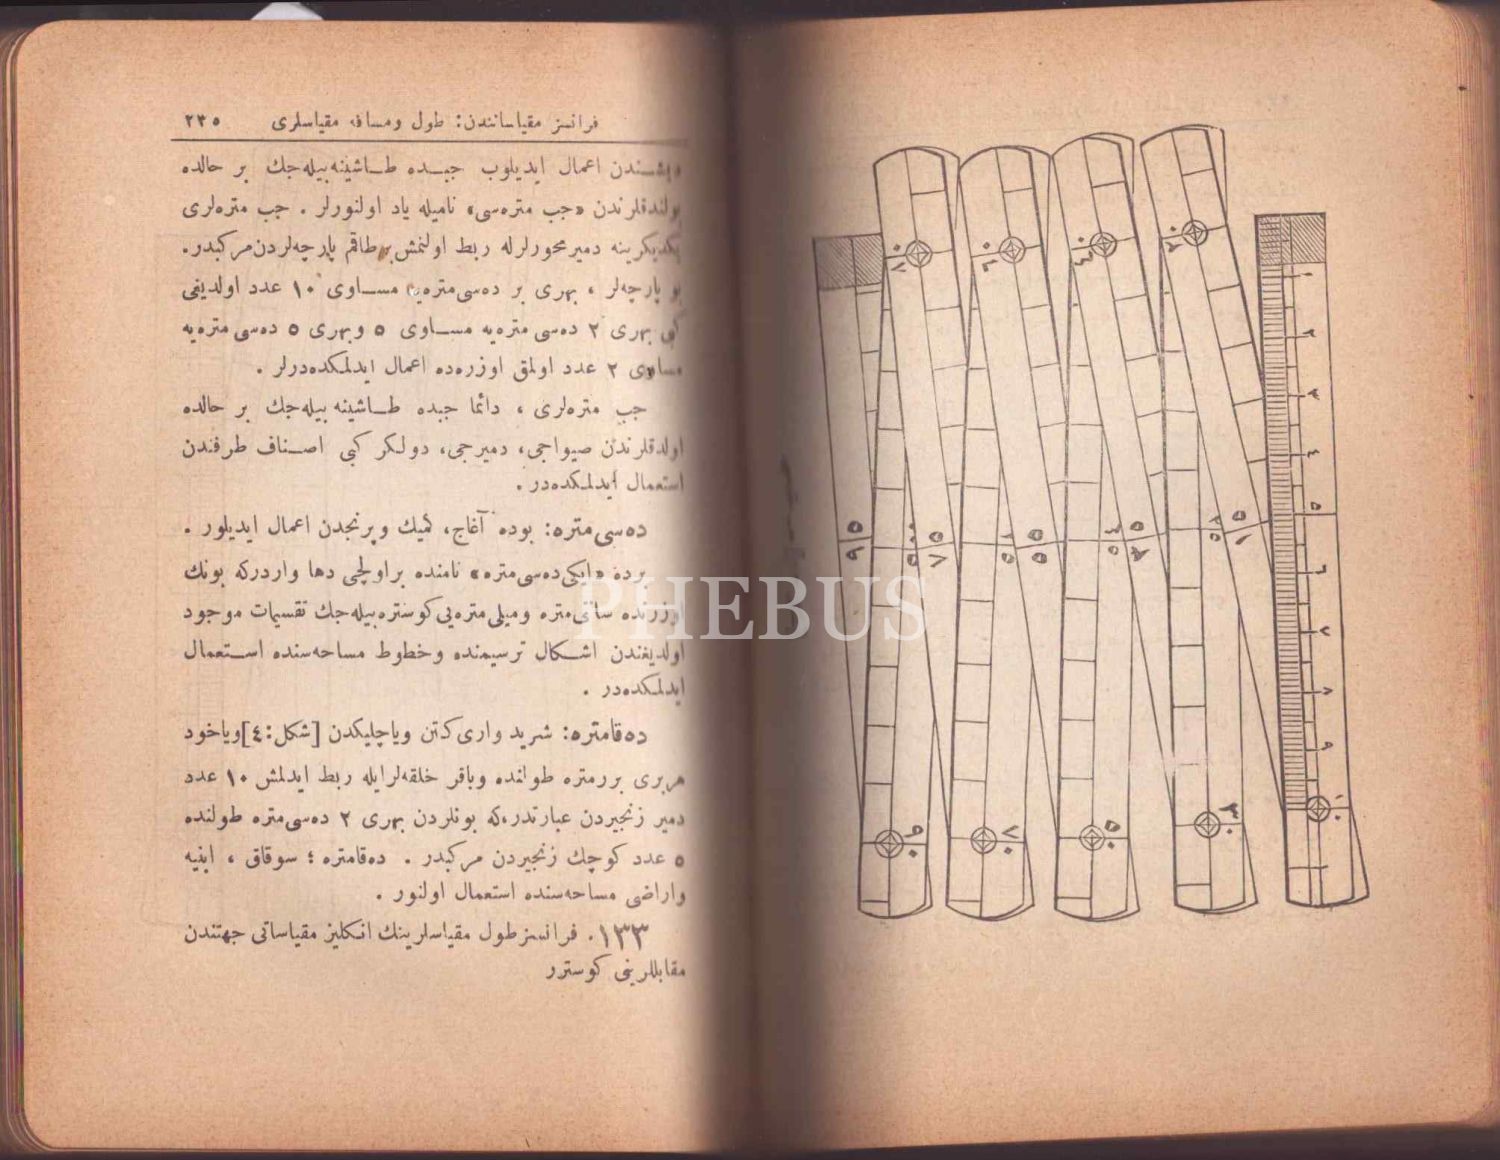 فرانسز مقياساتندن: طول ومسافه مقياسلرى ٢٣٥
ديشندن اعمال ايديلوب جيبده طاشينه‌بيله‌جك بر حالده
بولندقلرندن «جب متره‌سى» ناميله ياد اولنورلر . جب متره‌لرى
يكديكرينه دميرمحورلرله ربط اولنمش بر طاقم پارچه‌لردن مركبدر.
بو پارچه‌لر ، بهرى بر ده‌سى‌متره‌يه مساوى ١٠ عدد اولديغى
كبى بهرى ٢ ده‌سى متره‌يه مساوى ٥ وبهرى ٥ ده‌سى متره‌يه
مساوى ٢ عدد اولمق اوزره‌ده اعمال ايدلمكده‌درلر .
جب متره‌لرى ، دائما جبده طاشينه بيله‌جك بر حالده
اولدقلرندن صيواجى، دميرجى، دولكر كبى اصناف طرفندن
استعمال ايدلمكده‌در .
ده‌سى‌متره: بوده آغاج، كميك وپرنجدن اعمال ايديلور .
برده «ايكى‌ده‌سى‌متره» نامنده براولچى دها واردركه بونك
اوزرنده سانتى‌متره وميلى‌متره‌يى كوستره‌بيله‌جك تقسيمات موجود
اولديغندن اشكال ترسيمنده وخطوط مساحه‌سنده استعمال
ايدلمكده‌در .
ده‌قامتره: شريد وارى‌كتن وياچليكدن [شكل:٤] وياخود
هربرى بررمتره طولنده وباقر خلقه‌لرايله ربط ايدلمش ١٠ عدد
دمير زنجيردن عبارتدر،كه بونلردن بهرى ٢ ده‌سى‌متره طولنده
٥ عدد كوچك زنجيردن مركبدر . ده‌قامتره ؛ سوقاق ، ابنيه
واراضى مساحه‌سنده استعمال اولنور .
١٣٣. فرانسز طول مقياسلرينك انكليز مقياساتى جهتندن
مقابللرينى كوسترر
١
٢
٣
٤
٥
٦
٧
٨
٩
١٠
٣٠
٥٠
٧٠
٩٠
٩٥
PHEBUS